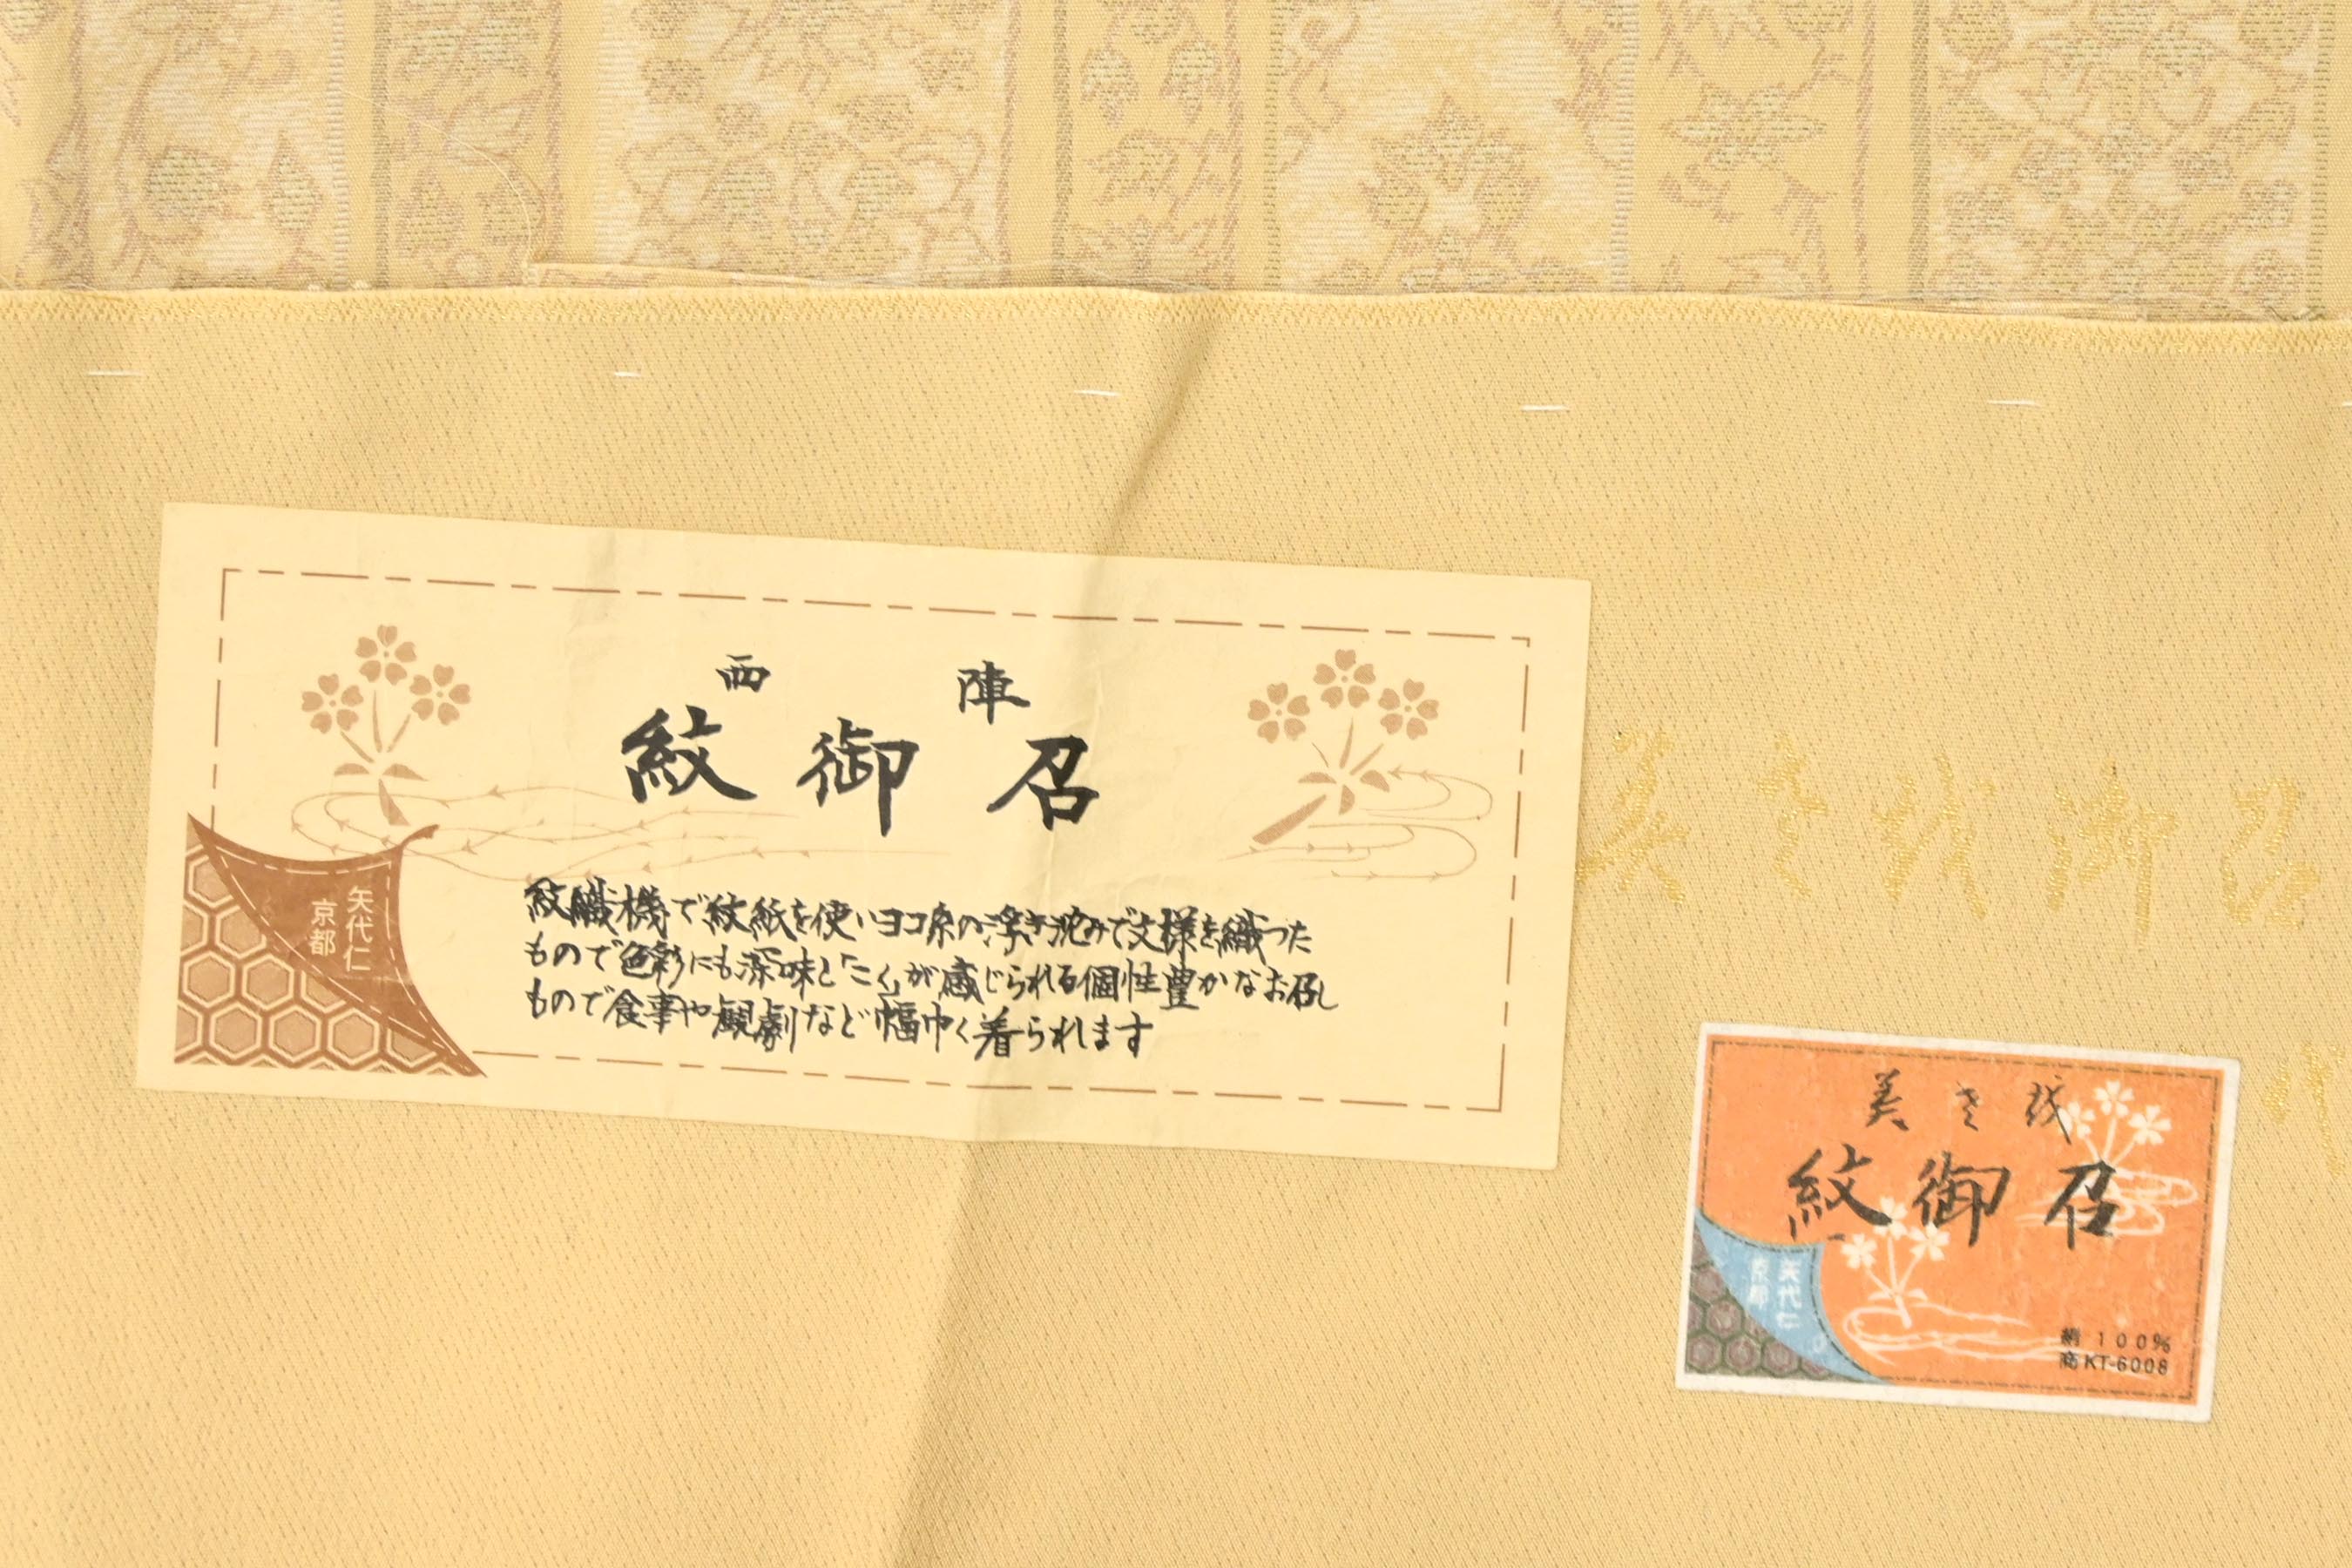 西陣
紋御召
紋織機で紋紙を使いヨコ糸の浮き沈みで文様を織つた
もので色彩にも深味と「こく」が感じられる個性豊かなお召し
もので食事や観劇など幅巾く着られます
矢代仁
京都
美き
御召
美き
紋御召
矢代仁
京都
絹 100%
商KT-6008